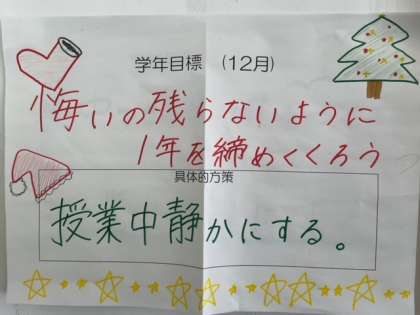 学年目標　(12月)
悔いの残らないように
1年を締めくくろう
具体的方策
授業中静かにする。